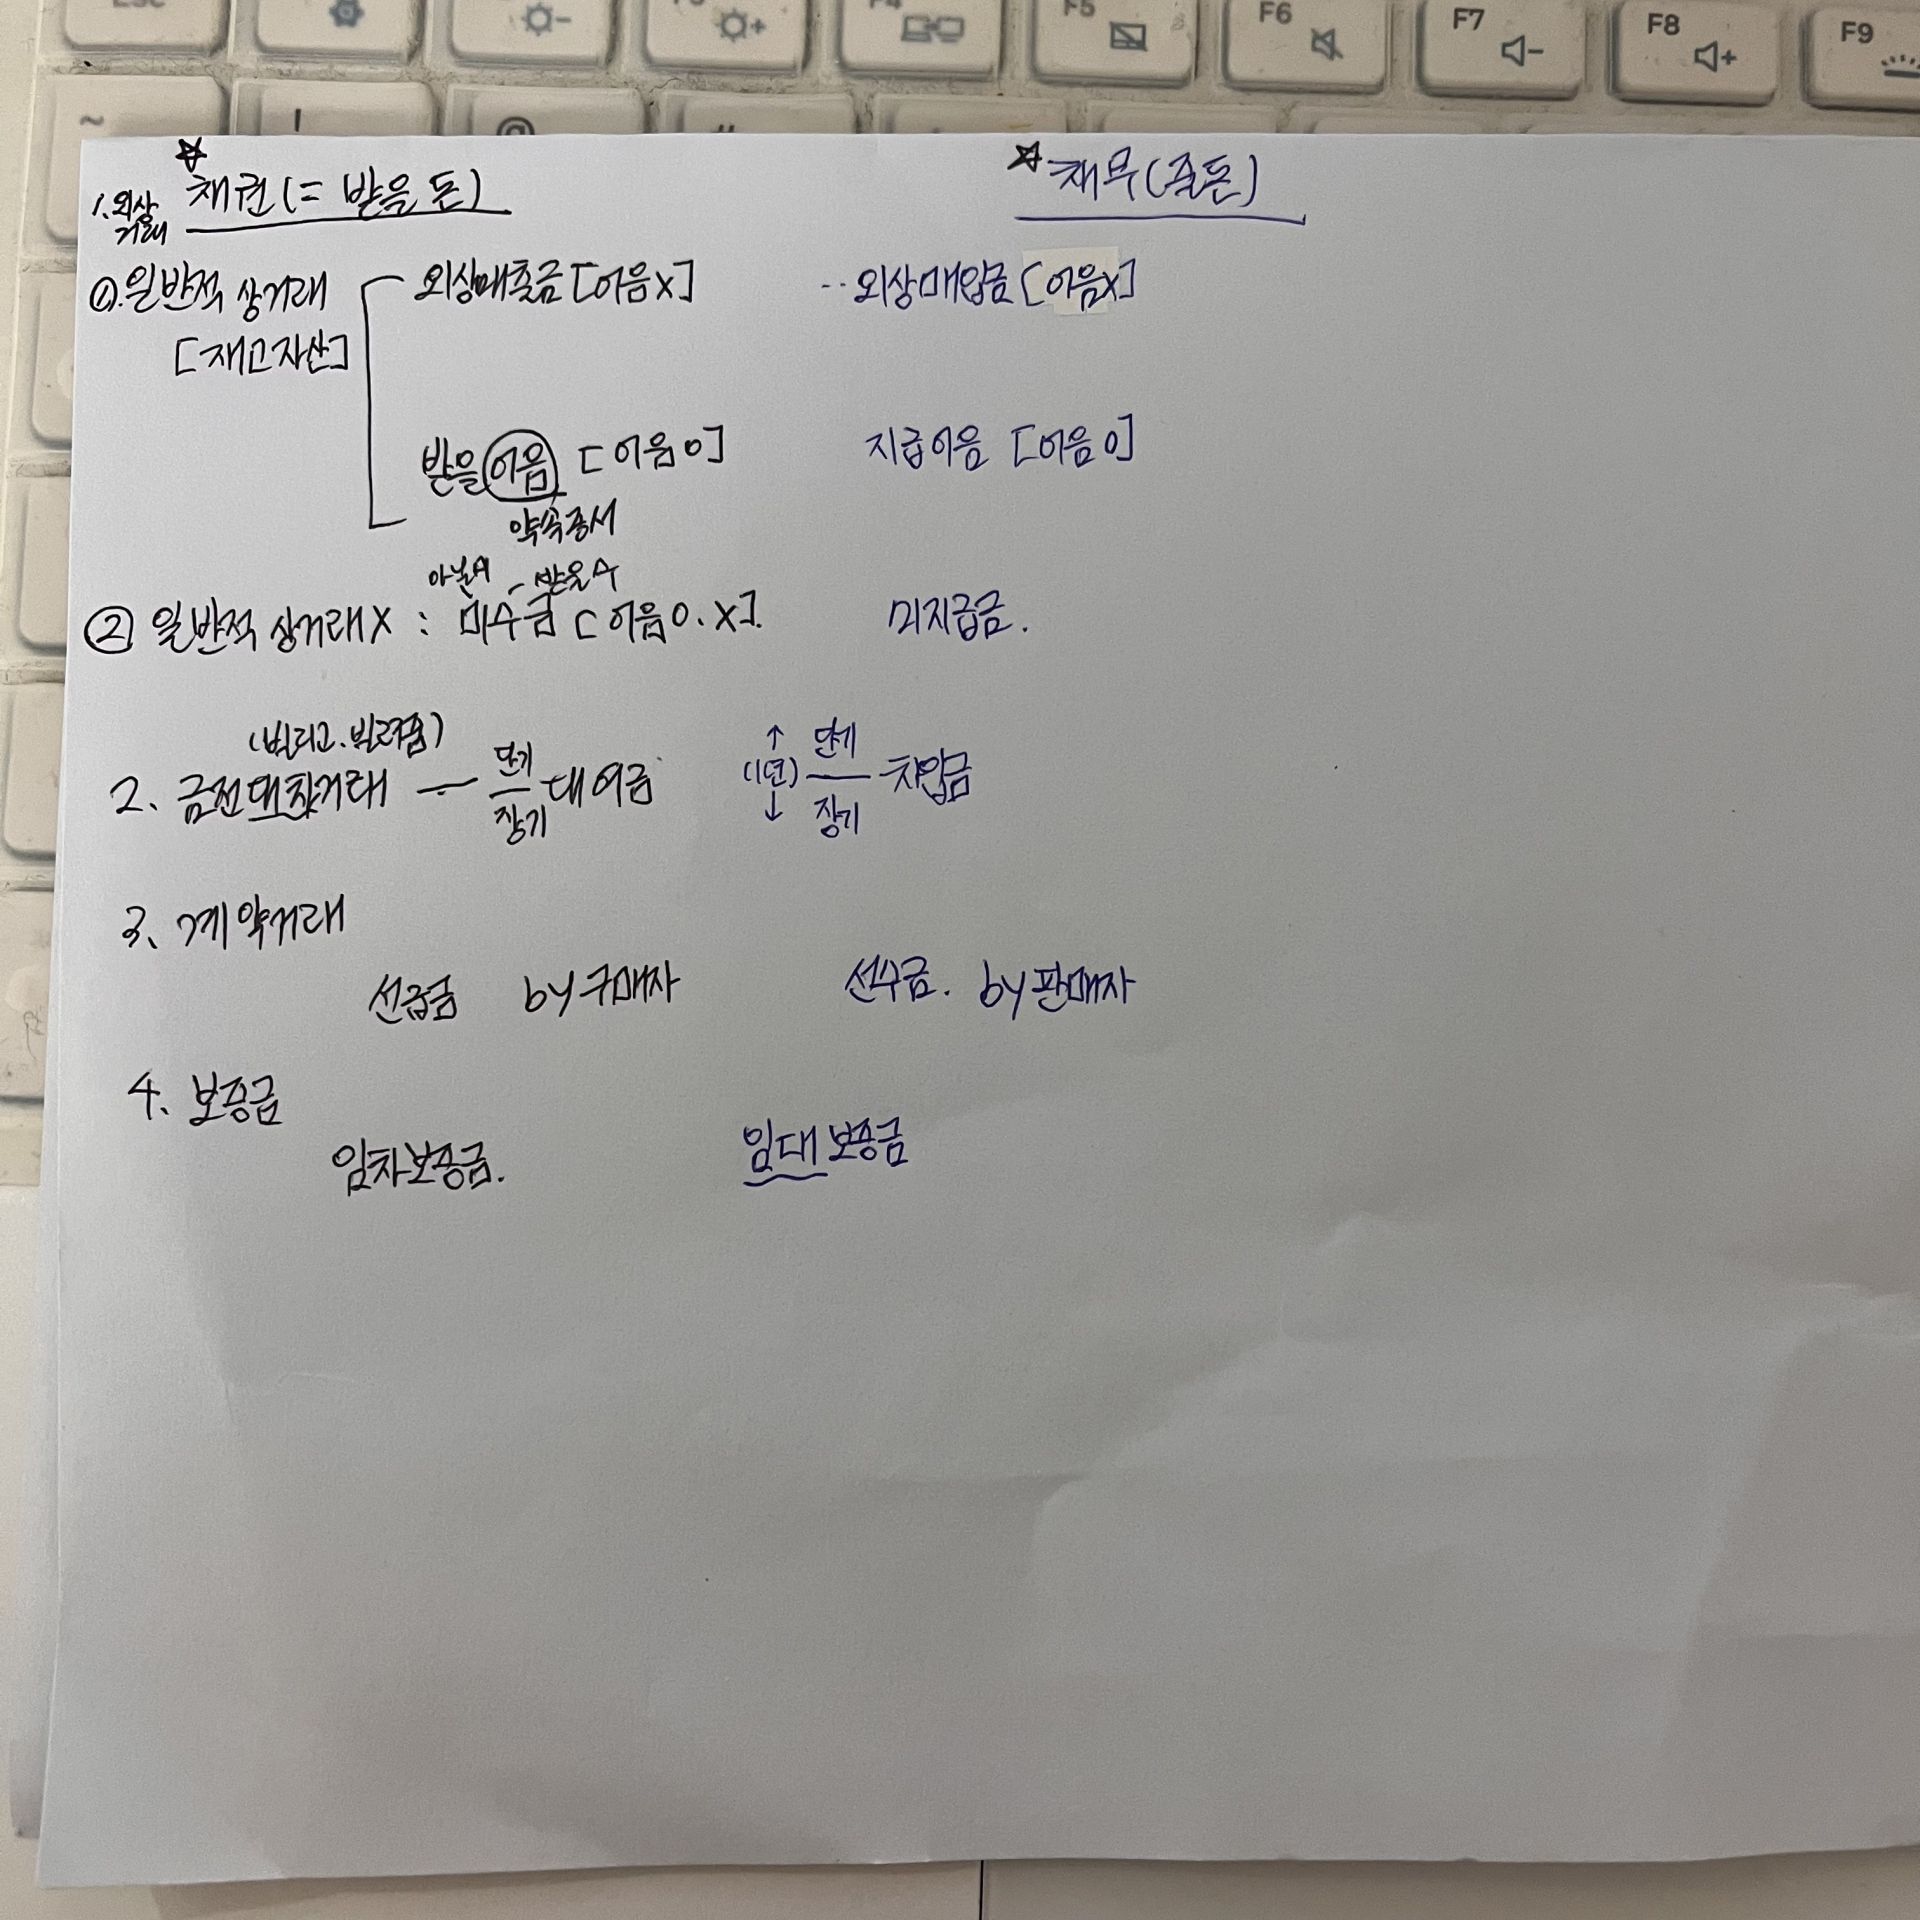 esc
F4
F5
F6
F7
F8
F9
~
!
@
#
☆ 채권(= 받을 돈)
☆ 채무(줄돈)
1. 외상
거래
①. 일반적 상거래
외상매출금 [어음X]
외상매입금 [어음X]
[재고자산]
받을 어음 [어음O]
지급어음 [어음O]
약속증서
아닐 미 받을 수
② 일반적 상거래X : 미수금 [어음O.X].
미지급금.
(빌리고.빌려줌)
2. 금전대차거래 — 단기 대여금
장기
↑ (1년) ↓ 단기 차입금
장기
3. 계약거래
선급금 by 구매자
선수금. by 판매자
4. 보증금
임차보증금.
임대보증금